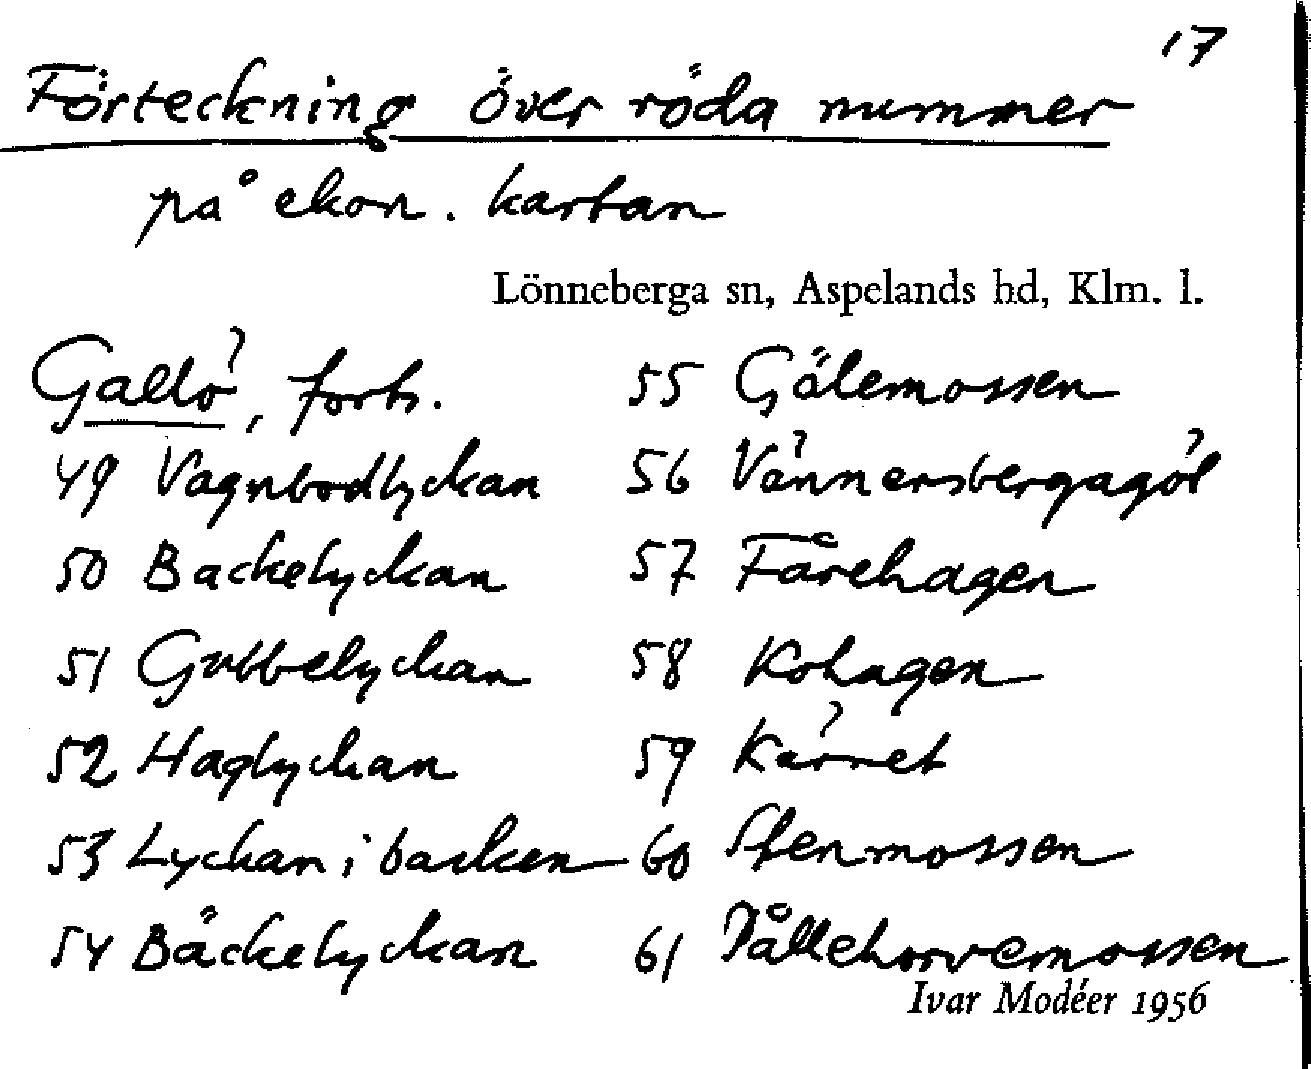 17
Förteckning över röda nummer
på ekon. kartan
Lönneberga sn, Aspelands hd, Klm. l.
Gallö, forts.
49 Vagnbodlyckan
50 Backelyckan
51 Gubbelyckan
52 Haglyckan
53 Lyckan i backen
54 Bäckelyckan
55 Gälemossen
56 Vännersbergagöl
57 Fårehagen
58 Kohagen
59 Kärret
60 Stenmossen
61 Pållehorvemossen
Ivar Modéer 1956